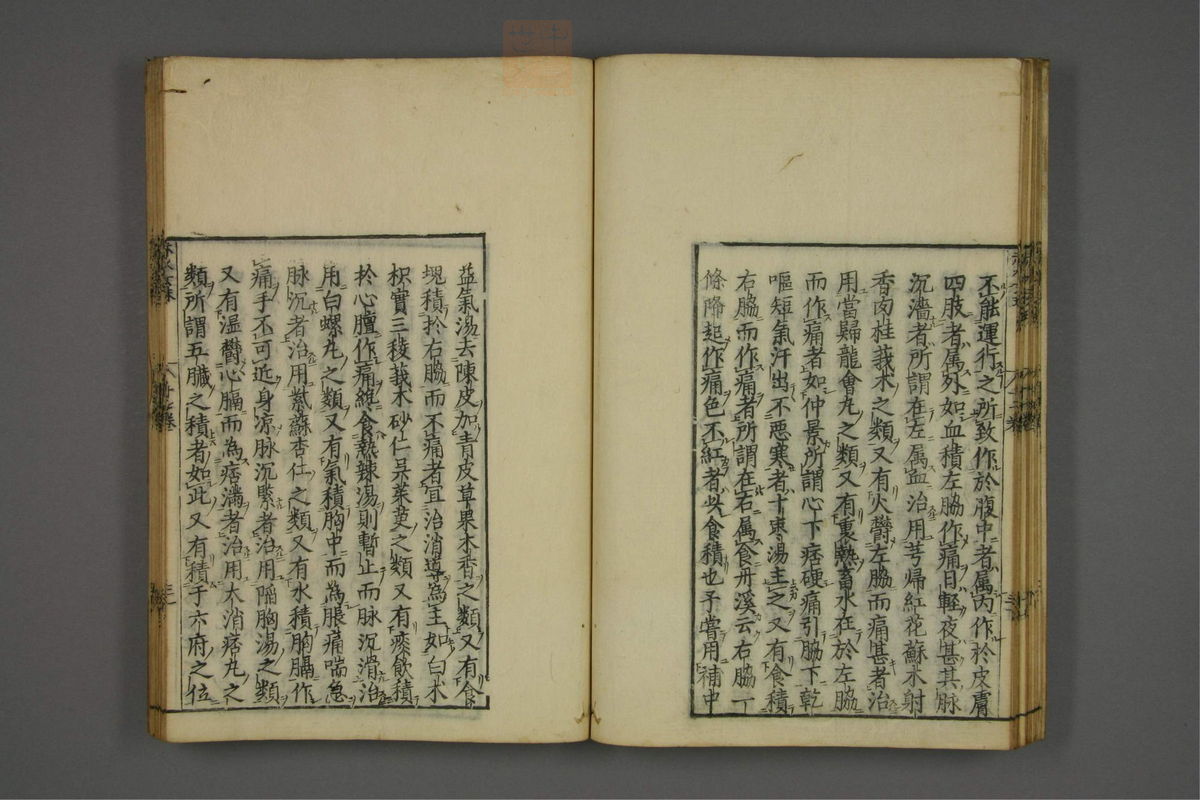 不能運行之所致作於腹中者属内作於皮膚
四肢者属外如血積左脇作痛日軽夜甚其脉
沉濇者所謂在左属血治用芎帰紅花蘇木射
香肉桂莪朮之類又有火欝左脇而痛甚者治
用當歸龍會丸之類又有裏熱畜水在於左脇
而作痛者如仲景所謂心下痞硬痛引脇下乾
嘔短氣汗出不惡寒者十棗湯主之又有食積
右脇而作痛者所謂在右属食丹溪云右脇一
條降起作痛色不紅者必食積也予嘗用補中
益氣湯去陳皮加青皮草果木香之類又有食
塊積於右脇而不痛者宜治消導為主如白朮
枳實三稜莪朮砂仁呉茱萸之類又有痰飲積
於心膻作痛纔食熱辣湯則暫止而脉沉滑治
用白螺丸之類又有氣積胸中而為脹痛喘急
脉沉者治用紫蘇杏仁之類又有水積胸膈作
痛手不可近身凉脉沉緊者治用陥胸湯之類
又有温欝心膈而為痞滿者治用大消痞丸之
類所謂五臓之積者如此又有積于六府之位